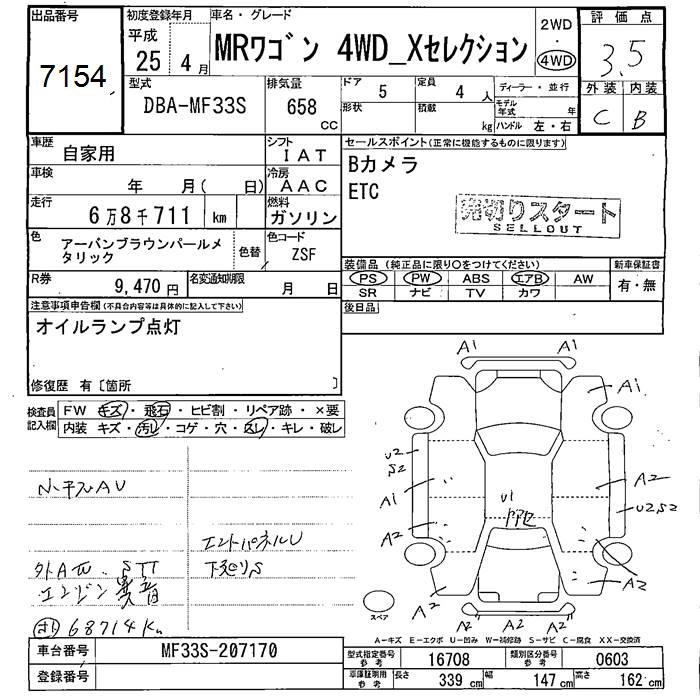 出品番号
7154
初度登録年月
平成
25年 4月
車名・グレード
MRワゴン 4WD_Xセレクション
2WD
・
4WD
評価点
3.5
外装 内装
C B
型式
DBA-MF33S
排気量
658
cc
ドア
5
定員
4人
形状
積載
kg
ディーラー・並行
モデル年式 年
ハンドル 左・右
車歴
自家用
シフト
IAT
車検
年 月( 日)
冷房
AAC
走行
6万8千711 km
燃料
ガソリン
色
アーバンブラウンパールメ
タリック
色替
色コード
ZSF
R券
9,470円
名変通知期限
月 日
セールスポイント(正常に機能するものに限ります)
Bカメラ
ETC
売切りスタート
SELLOUT
装備品 (純正品に限り○をつけてください)
新車保証書
PS PW ABS エアB AW
SR ナビ TV カワ
有・無
後日品
注意事項申告欄(不具合内容等は具体的に記入して下さい)
オイルランプ点灯
修復歴 有〔箇所 〕
検査員
記入欄
FW キズ・飛石・ヒビ割・リペア跡・×要
内装 キズ・汚レ・コゲ・穴・スレ・キレ・破レ
小キズAU
エンドパネルU
下廻りS
エンジン異音
68714Km
A1
A1
A1
U2
S2
A1
A2
U1
A2
U2,S2
A2
A2
A2
A2
A2
スペア
A-キズ E-エクボ U-凹み W-補修跡 S-サビ C-腐食 XX-交換済
車台番号
MF33S-207170
登録番号
型式指定番号
参考
16708
類別区分番号
参考
0603
車庫証明用
参考
長さ
339 cm
幅
147 cm
高さ
162 cm